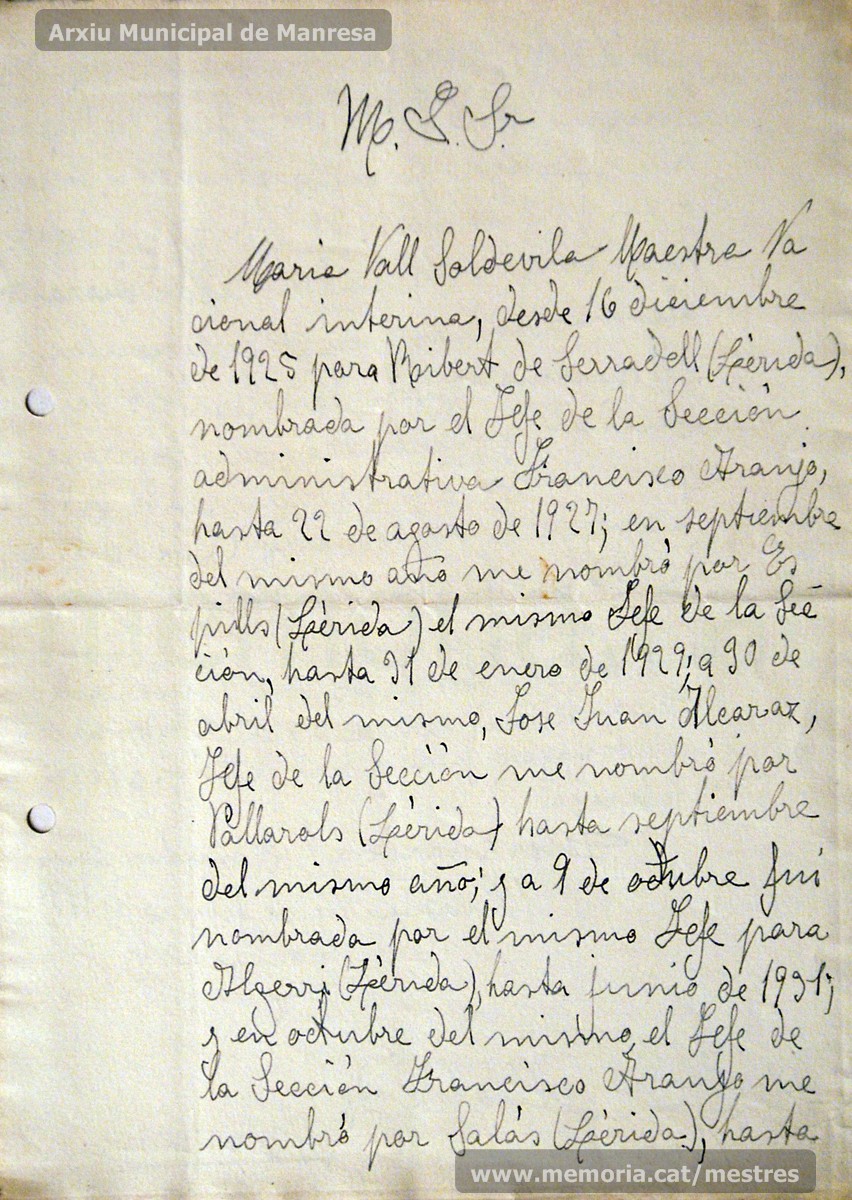 Arxiu Municipal de Manresa
M. I. Sr
Maria Vall Soldevila Maestra Na
cional interina, desde 16 diciembre
de 1925 para Ribert de Serradell (Lérida),
nombrada por el Jefe de la Sección
administrativa Francisco Araujo,
hasta 22 de agosto de 1927; en septiembre
del mismo año me nombró por Es
pills (Lérida) el mismo Jefe de la Sec
ción, hasta 31 de enero de 1929; a 30 de
abril del mismo, Jose Juan Alcaraz,
Jefe de la Sección me nombró por
Pallarols (Lérida) hasta septiembre
del mismo año; y a 9 de octubre fui
nombrada por el mismo Jefe para
Algerri (Lérida), hasta junio de 1931;
y en octubre del mismo, el Jefe de
la Sección Francisco Araujo me
nombró por Salás (Lérida), hasta
www.memoria.cat/mestres